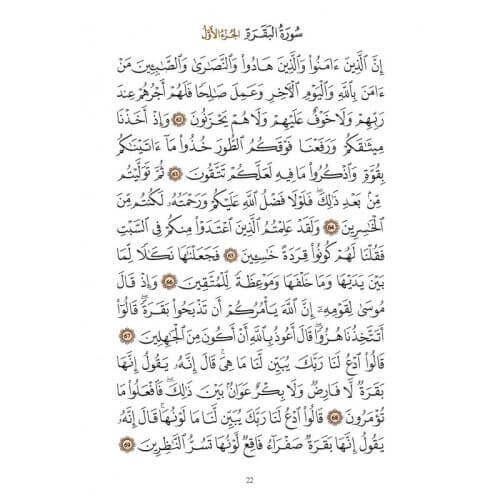 سُورَةُ البَقَرَةِ الجُزْءُ الأَوَّلُ
إِنَّ ٱلَّذِينَ ءَامَنُوا۟ وَٱلَّذِينَ هَادُوا۟ وَٱلنَّصَٰرَىٰ وَٱلصَّٰبِـِٔينَ مَنْ
ءَامَنَ بِٱللَّهِ وَٱلْيَوْمِ ٱلْـَٔاخِرِ وَعَمِلَ صَٰلِحًا فَلَهُمْ أَجْرُهُمْ عِندَ
رَبِّهِمْ وَلَا خَوْفٌ عَلَيْهِمْ وَلَا هُمْ يَحْزَنُونَ ٦٢ وَإِذْ أَخَذْنَا
مِيثَٰقَكُمْ وَرَفَعْنَا فَوْقَكُمُ ٱلطُّورَ خُذُوا۟ مَآ ءَاتَيْنَٰكُم
بِقُوَّةٍ وَٱذْكُرُوا۟ مَا فِيهِ لَعَلَّكُمْ تَتَّقُونَ ٦٣ ثُمَّ تَوَلَّيْتُم
مِّنۢ بَعْدِ ذَٰلِكَ ۖ فَلَوْلَا فَضْلُ ٱللَّهِ عَلَيْكُمْ وَرَحْمَتُهُۥ لَكُنتُم مِّنَ
ٱلْخَٰسِرِينَ ٦٤ وَلَقَدْ عَلِمْتُمُ ٱلَّذِينَ ٱعْتَدَوْا۟ مِنكُمْ فِى ٱلسَّبْتِ
فَقُلْنَا لَهُمْ كُونُوا۟ قِرَدَةً خَٰسِـِٔينَ ٦٥ فَجَعَلْنَٰهَا نَكَٰلًا لِّمَا
بَيْنَ يَدَيْهَا وَمَا خَلْفَهَا وَمَوْعِظَةً لِّلْمُتَّقِينَ ٦٦ وَإِذْ قَالَ
مُوسَىٰ لِقَوْمِهِۦٓ إِنَّ ٱللَّهَ يَأْمُرُكُمْ أَن تَذْبَحُوا۟ بَقَرَةً ۖ قَالُوٓا۟
أَتَتَّخِذُنَا هُزُوًا ۖ قَالَ أَعُوذُ بِٱللَّهِ أَنْ أَكُونَ مِنَ ٱلْجَٰهِلِينَ ٦٧
قَالُوا۟ ٱدْعُ لَنَا رَبَّكَ يُبَيِّن لَّنَا مَا هِىَ ۚ قَالَ إِنَّهُۥ يَقُولُ إِنَّهَا
بَقَرَةٌ لَّا فَارِضٌ وَلَا بِكْرٌ عَوَانٌۢ بَيْنَ ذَٰلِكَ ۖ فَٱفْعَلُوا۟ مَا
تُؤْمَرُونَ ٦٨ قَالُوا۟ ٱدْعُ لَنَا رَبَّكَ يُبَيِّن لَّنَا مَا لَوْنُهَا ۚ قَالَ إِنَّهُۥ
يَقُولُ إِنَّهَا بَقَرَةٌ صَفْرَآءُ فَاقِعٌ لَّوْنُهَا تَسُرُّ ٱلنَّٰظِرِينَ ٦٩
22